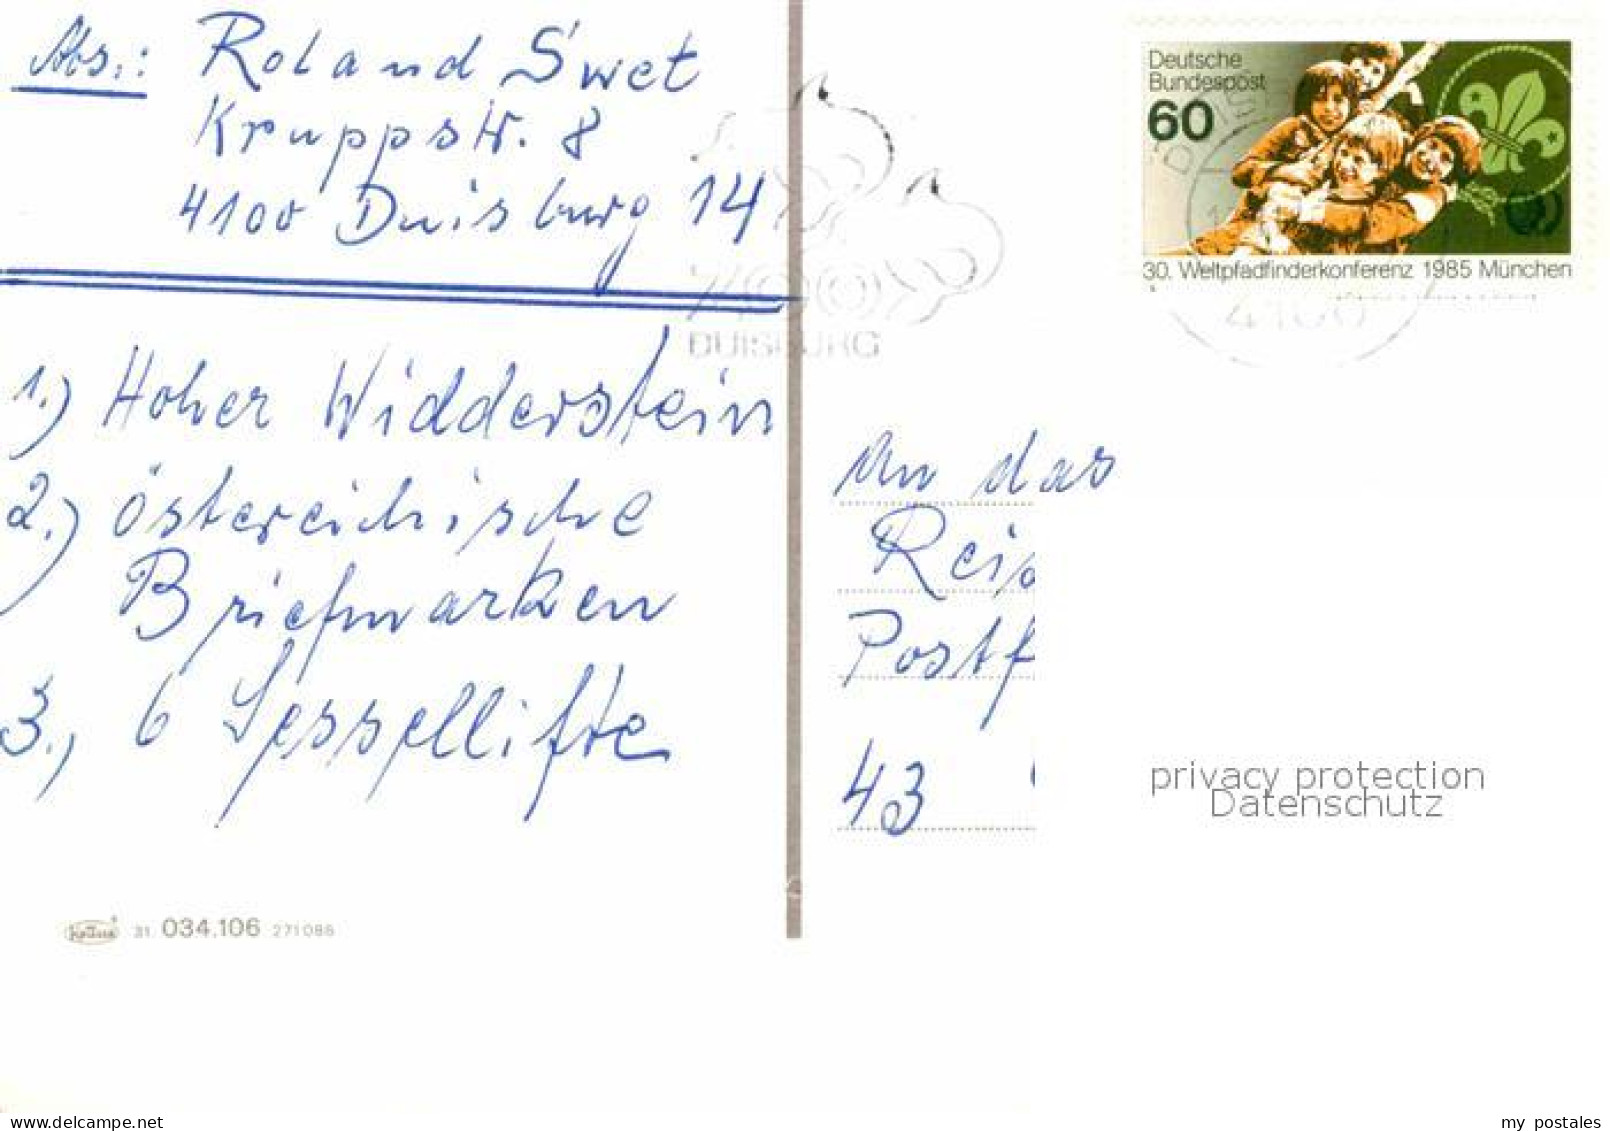 Abs.: Roland Swet
Kruppstr. 8
4100 Duisburg 14
1.) Hoher Widderstein
2.) östereichische
Briefmarken
3., 6 Sessellifte
31 034.106 271086
DUISBURG
Deutsche
Bundespost
60
30. Weltpfadfinderkonferenz 1985 München
4100
An das
Reis
Postf
43
privacy protection
Datenschutz
my postales